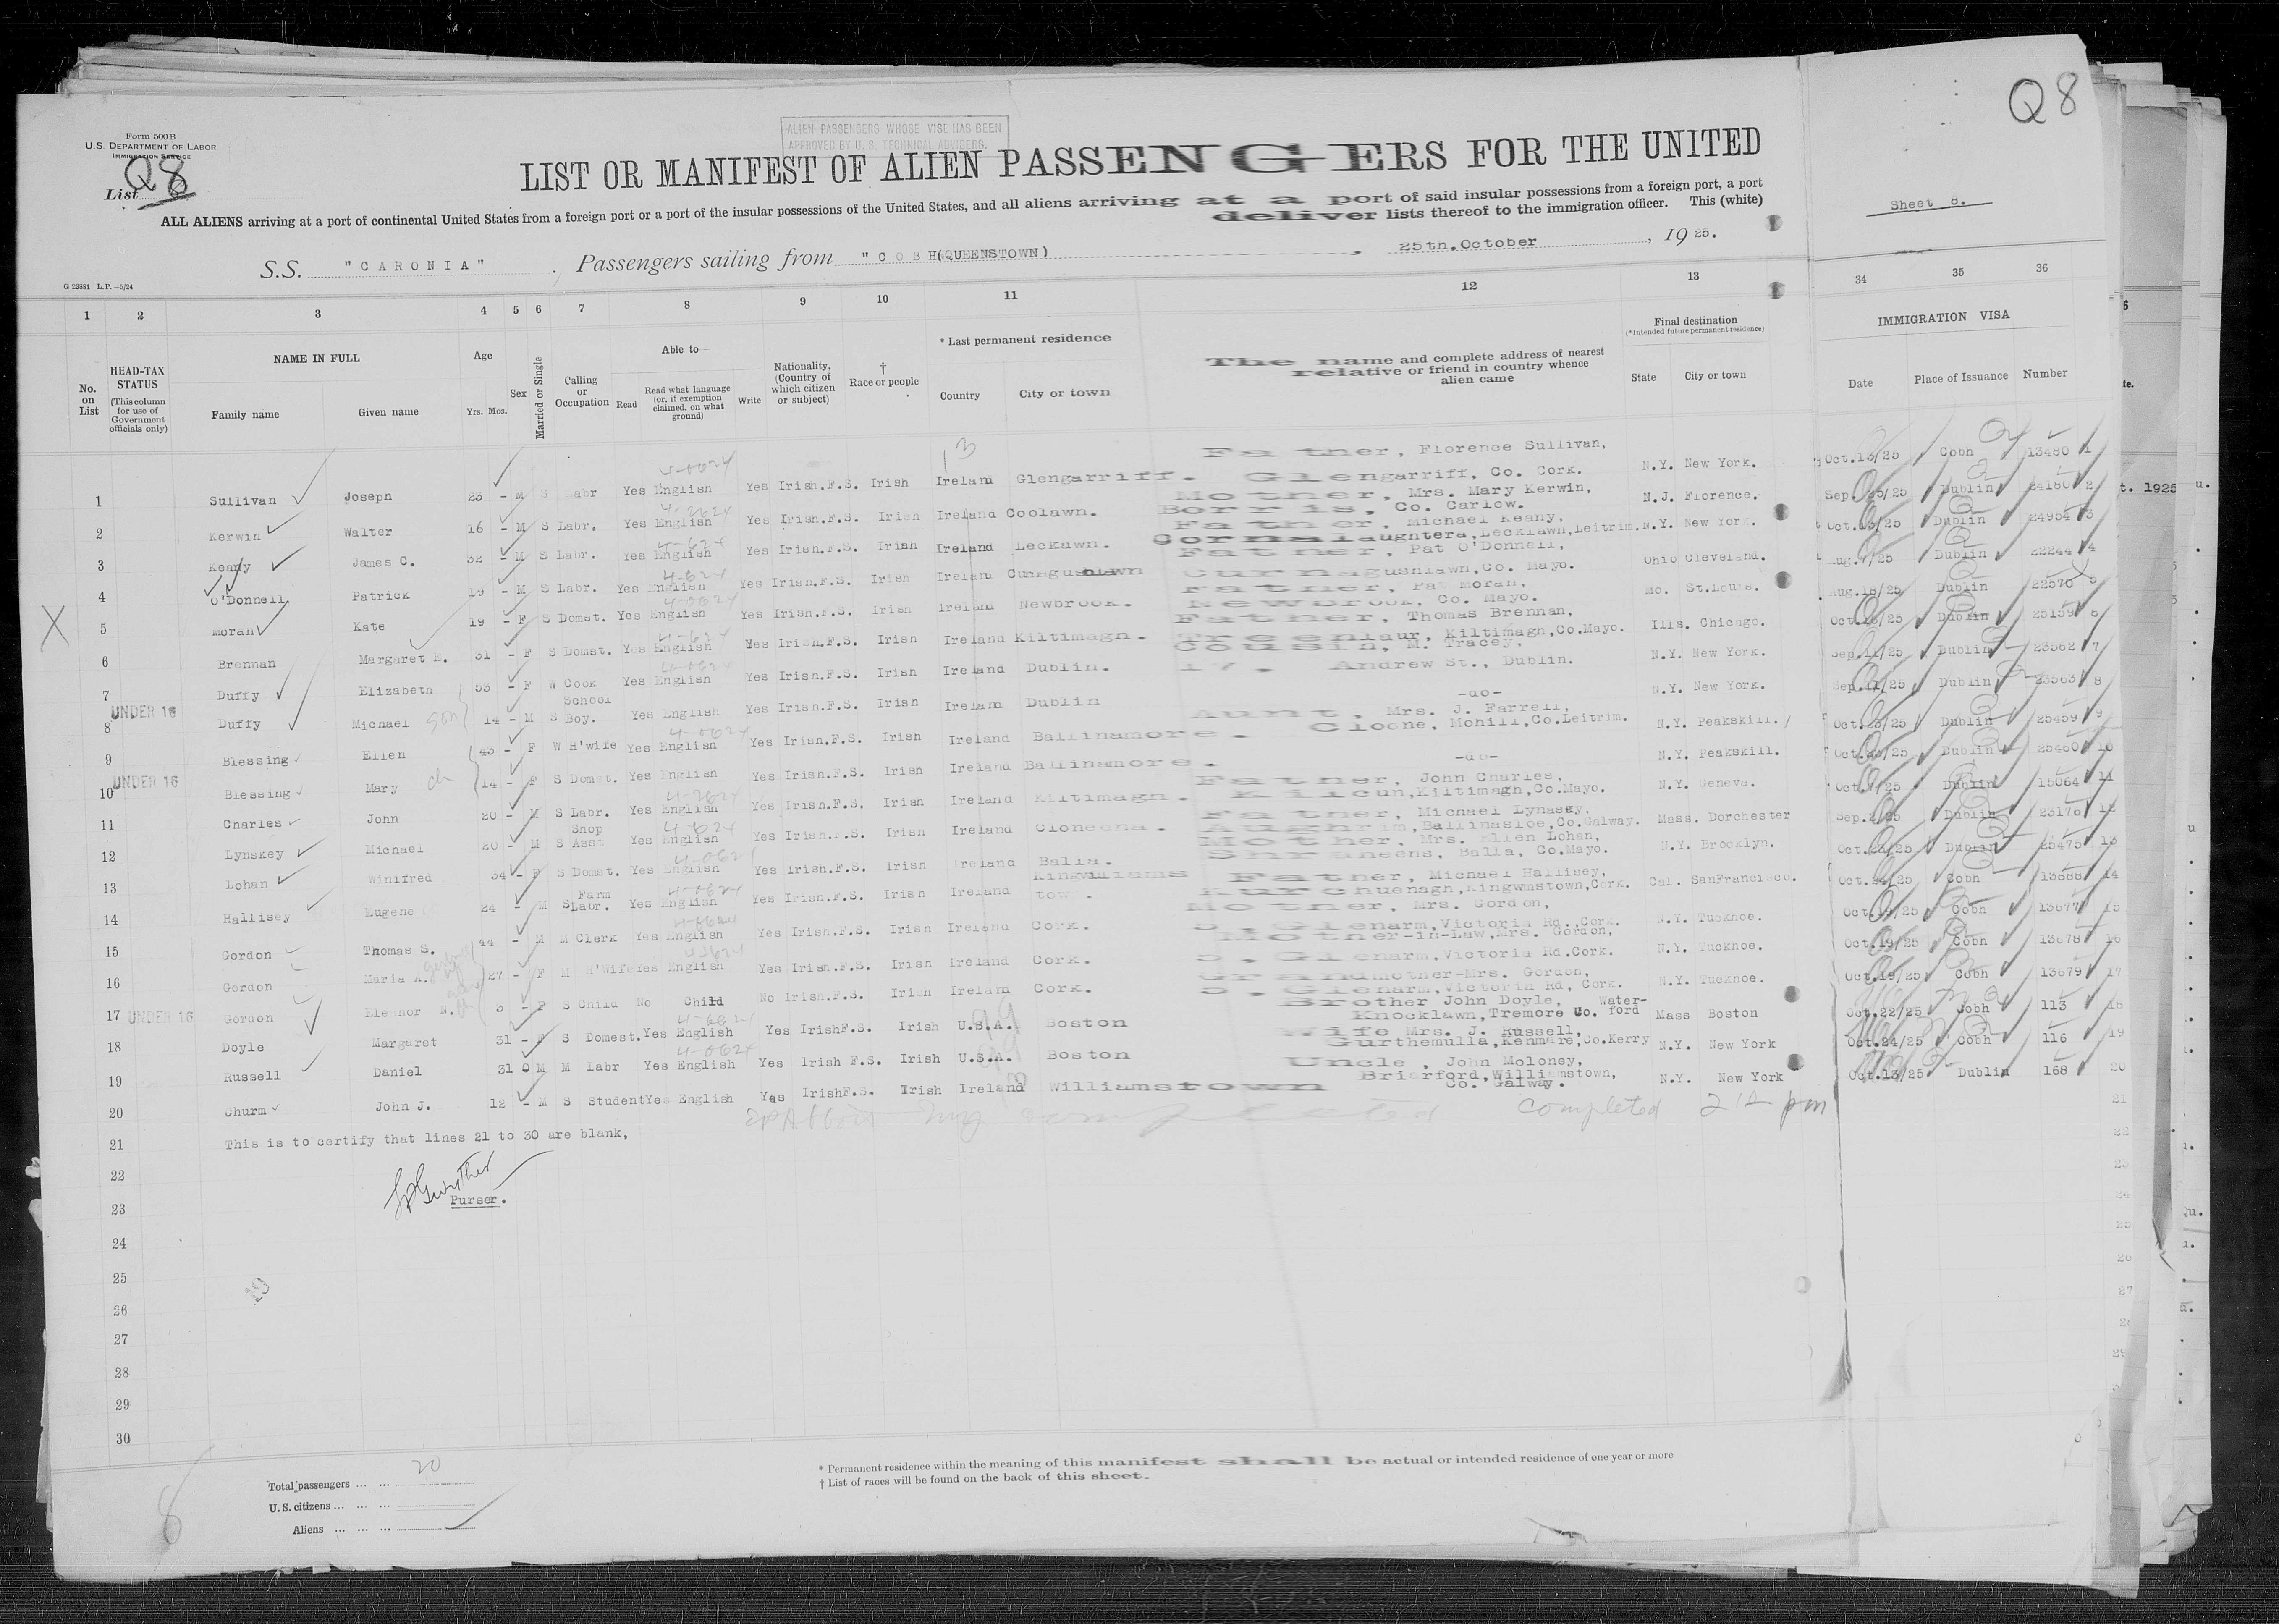 Q8
Form 500B
U.S. DEPARTMENT OF LABOR
IMMIGRATION SERVICE
List Q8
ALIEN PASSENGERS WHOSE VISE HAS BEEN
APPROVED BY U. S. TECHNICAL ADVISERS.
LIST OR MANIFEST OF ALIEN PASSENGERS FOR THE UNITED
ALL ALIENS arriving at a port of continental United States from a foreign port or a port of the insular possessions of the United States, and all aliens arriving at a port of said insular possessions from a foreign port, a port
deliver lists thereof to the immigration officer. This (white)
Sheet 8.
S.S. "CARONIA", Passengers sailing from "COBH(QUEENSTOWN), 25th.October, 1925.
G 23881 L.P.—5/24
1 2 3 4 5 6 7 8 9 10 11 12 13 34 35 36
No. on List
HEAD-TAX STATUS (This column for use of Government officials only)
NAME IN FULL
Family name Given name
Age Yrs. Mos.
Sex
Married or Single
Calling or Occupation
Able to—
Read Read what language (or, if exemption claimed, on what ground) Write
Nationality, (Country of which citizen or subject)
† Race or people
* Last permanent residence
Country City or town
The name and complete address of nearest relative or friend in country whence alien came
Final destination
(*Intended future permanent residence)
State City or town
IMMIGRATION VISA
Date Place of Issuance Number
1 Sullivan Joseph 23 - M S Labr Yes English Yes Irish.F.S. Irish Ireland Glengarriff. Father, Florence Sullivan, Glengarriff, Co. Cork. N.Y. New York. Oct.13/25 Cobh 13480 1
2 Kerwin Walter 16 - M S Labr. Yes English Yes Irish.F.S. Irish Ireland Coolawn. Mother, Mrs. Mary Kerwin, Borris, Co. Carlow. N.J. Florence. Dublin 24180 2
3 Keany James C. 32 - M S Labr. Yes English Yes Irish.F.S. Irish Ireland Leckawn. Father, Michael Keany, Leckawn, Leitrim. N.Y. New York. Dublin 24954 3
4 O'Donnell Patrick 19 - M S Labr. Yes English Yes Irish.F.S. Irish Ireland Father, Pat O'Donnell, Curnagushlawn, Co. Mayo. Ohio Cleveland. Aug.7/25 Dublin 22244 4
5 Moran Kate 19 - F S Domst. Yes English Yes Irish.F.S. Irish Ireland Newbrook. Father, Pat Moran, Newbrook, Co. Mayo. Mo. St.Louis. Aug.18/25 Dublin 22570 5
6 Brennan Margaret 31 - F S Domst. Yes English Yes Irish.F.S. Irish Ireland Kiltimagh. Father, Thomas Brennan, Treenlaur, Kiltimagh,Co.Mayo. Ills. Chicago. Dublin 25159 6
7 Duffy Elizabeth 53 - F W Cook Yes English Yes Irish.F.S. Irish Ireland Dublin. Cousin, M. Tracey, 17. Andrew St., Dublin. N.Y. New York. Sep.11/25 Dublin 23562 7
UNDER 16
8 Duffy Michael son 14 - M S School Boy. Yes English Yes Irish.F.S. Irish Ireland Dublin -do- N.Y. New York. Sep.11/25 Dublin 23563 8
9 Blessing Ellen 45 - F W H'wife Yes English Yes Irish.F.S. Irish Ireland Ballinamore. Aunt, Mrs. J. Farrell, Cloone, Mohill,Co.Leitrim. N.Y. Peakskill. Oct.23/25 Dublin 25459 9
UNDER 16
10 Blessing Mary ch 14 - F S Domst. Yes English Yes Irish.F.S. Irish Ireland Ballinamore. -do- N.Y. Peakskill. Oct.23/25 Dublin 25460 10
11 Charles John 20 - M S Labr. Yes English Yes Irish.F.S. Irish Ireland Kiltimagh. Father, John Charles, Kiltimagh,Co.Mayo. N.Y. Geneva. Dublin 15064 11
12 Lynskey Michael 20 - M S Shop Asst Yes English Yes Irish.F.S. Irish Ireland Father, Michael Lynskey, Aughrim,Ballinasloe,Co.Galway. Mass. Dorchester Dublin 23176 12
13 Lohan Winifred 34 - F S Domst. Yes English Yes Irish.F.S. Irish Ireland Balla. Mother, Mrs. Ellen Lohan, Shraneens, Balla, Co.Mayo. N.Y. Brooklyn. Dublin 25475 13
14 Hallisey Eugene 24 - M S Farm Labr. Yes English Yes Irish.F.S. Irish Ireland Kingwilliamstown. Father, Michael Hallisey, Kingwmstown,Cork. Cal. SanFrancisco. Cobh 14
15 Gordon Thomas S. 44 - M M Clerk Yes English Yes Irish.F.S. Irish Ireland Cork. Mother, Mrs. Gordon, 5, Glenarm,Victoria Rd.,Cork. N.Y. Tuckhoe. Oct.19/25 Cobh 13677 15
16 Gordon Maria A. 27 - F M H'Wife Yes English Yes Irish.F.S. Irish Ireland Cork. Mother-in-Law,Mrs. Gordon, 5, Glenarm,Victoria Rd.Cork. N.Y. Tuckhoe. Oct.19/25 Cobh 13678 16
17 UNDER 16 Gordon Eleanor 3 - F S Child No Child No Irish.F.S. Irish Ireland Cork. Grandmother-Mrs. Gordon, 5, Glenarm,Victoria Rd, Cork. N.Y. Tuckhoe. Oct.19/25 Cobh 13679 17
18 Doyle Margaret 31 - F S Domest. Yes English Yes IrishF.S. Irish U.S.A. Boston Brother John Doyle, Knocklawn,Tremore Co. Waterford Mass Boston Oct.22/25 Cobh 113 18
19 Russell Daniel 31 0 M M Labr Yes English Yes Irish F.S. Irish U.S.A. Boston Wife Mrs. J. Russell, Gurthemulla,Kenmare,Co.Kerry N.Y. New York Oct.24/25 Cobh 116 19
20 Churm John J. 12 - M S Student Yes English Yes IrishF.S. Irish Ireland Williamstown Uncle, John Moloney, Briarford,Williamstown, Co. Galway. N.Y. New York Oct.13/25 Dublin 168 20
completed 2 12 pm
21 This is to certify that lines 21 to 30 are blank,
22
Purser.
23
24
25
26
27
28
29
30
Total passengers 20
U.S. citizens
Aliens
* Permanent residence within the meaning of this manifest shall be actual or intended residence of one year or more
† List of races will be found on the back of this sheet.
8